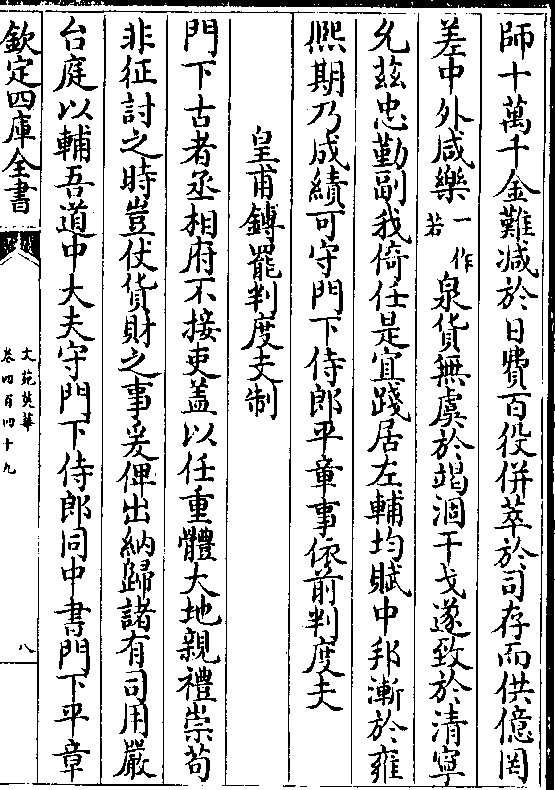 師十萬千金難减於日費百役併萃於司存而供億罔
差中外咸樂一作若泉貨無虞於竭涸干戈遂致於清寧
允兹忠勤副我倚任是宜踐居左輔均賦中邦漸於雍
熈期乃成績可守門下侍郎平章事依前判度支
皇甫鏄罷判度支制
門下古者丞相府不接吏盖以任重體大地親禮崇苟
非征討之時豈仗貨財之事爰俾出納歸諸有司用嚴
台庭以輔吾道中大夫守門下侍郎同中書門下平章
欽定四庫全書
文苑英華
卷四百四十九
八